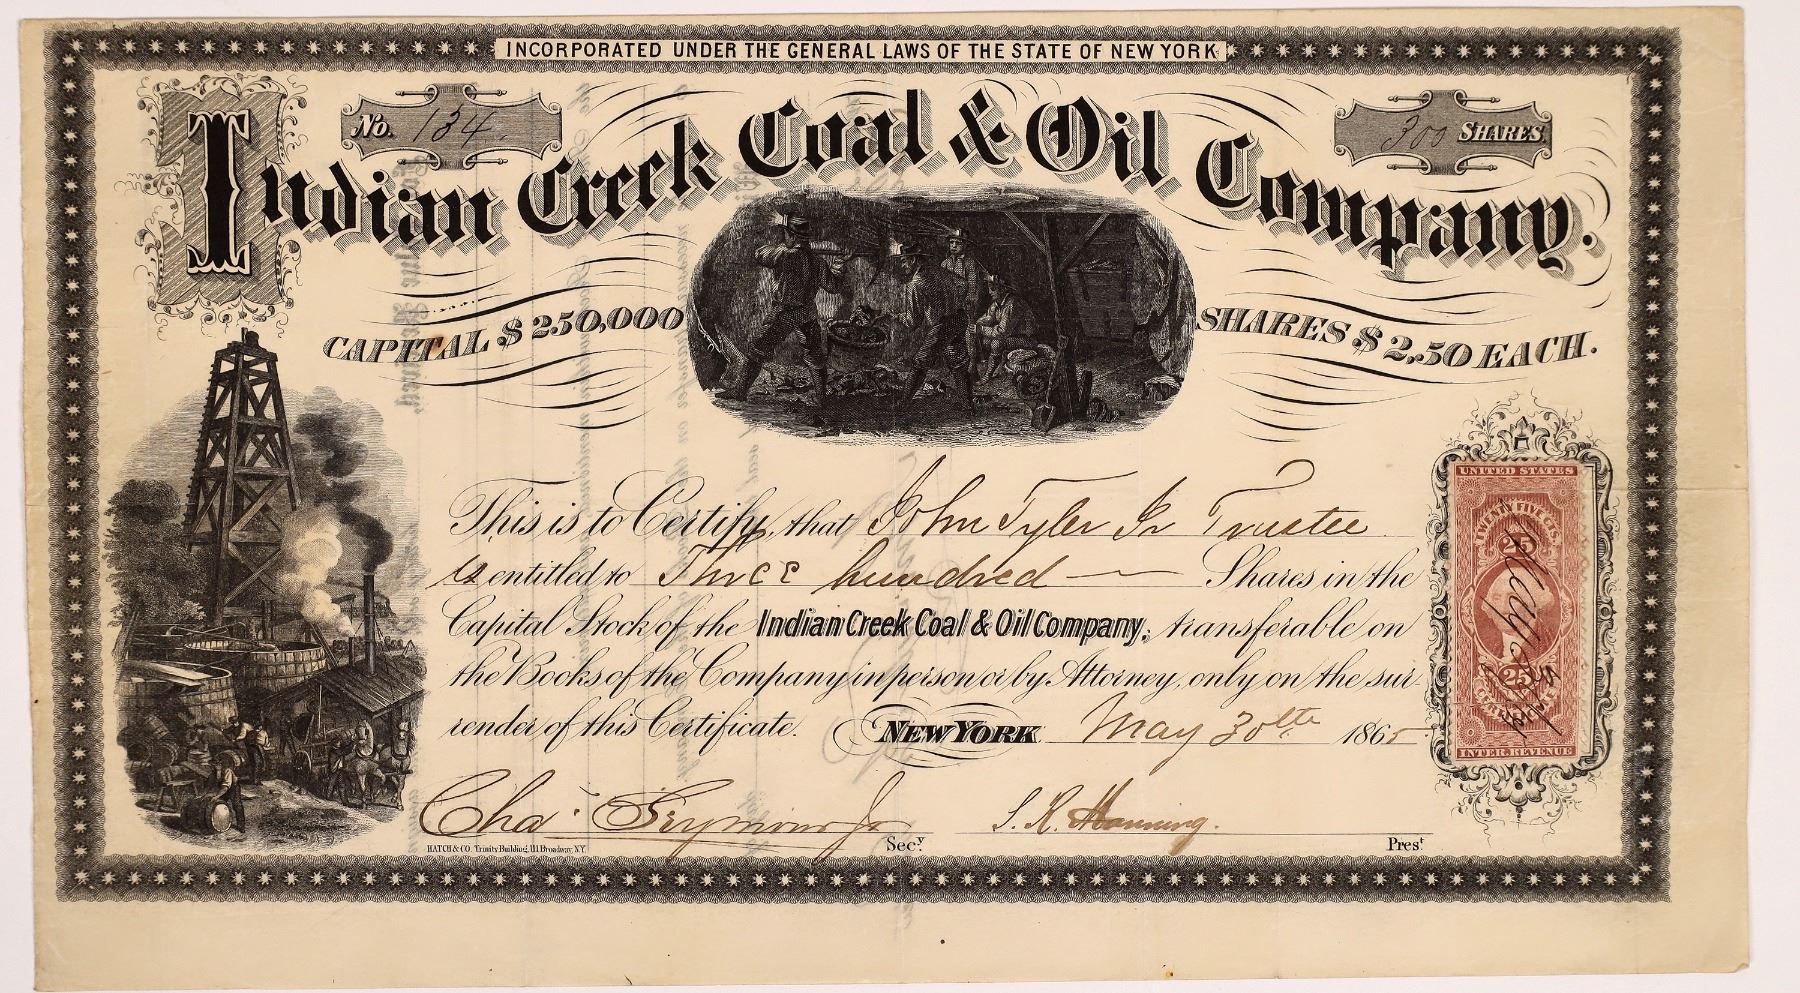 INCORPORATED UNDER THE GENERAL LAWS OF THE STATE OF NEW YORK
No. 134.
300 SHARES
Indian Creek Coal & Oil Company.
CAPITAL $250,000
SHARES $2,50 EACH.
This is to Certify, that John Tyler Jr Trustee
is entitled to Three hundred Shares in the
Capital Stock of the Indian Creek Coal & Oil Company, transferable on
the Books of the Company in person or by Attorney, only on the sur-
render of this Certificate. NEW YORK May 30th 1865
UNITED STATES
TWENTY FIVE CTS.
25
May 30
25
INTER. REVENUE
Chas Seymour Jr Secy.
S. R. Manning. Prest
HATCH & CO. Trinity Building, 111 Broadway, N.Y.